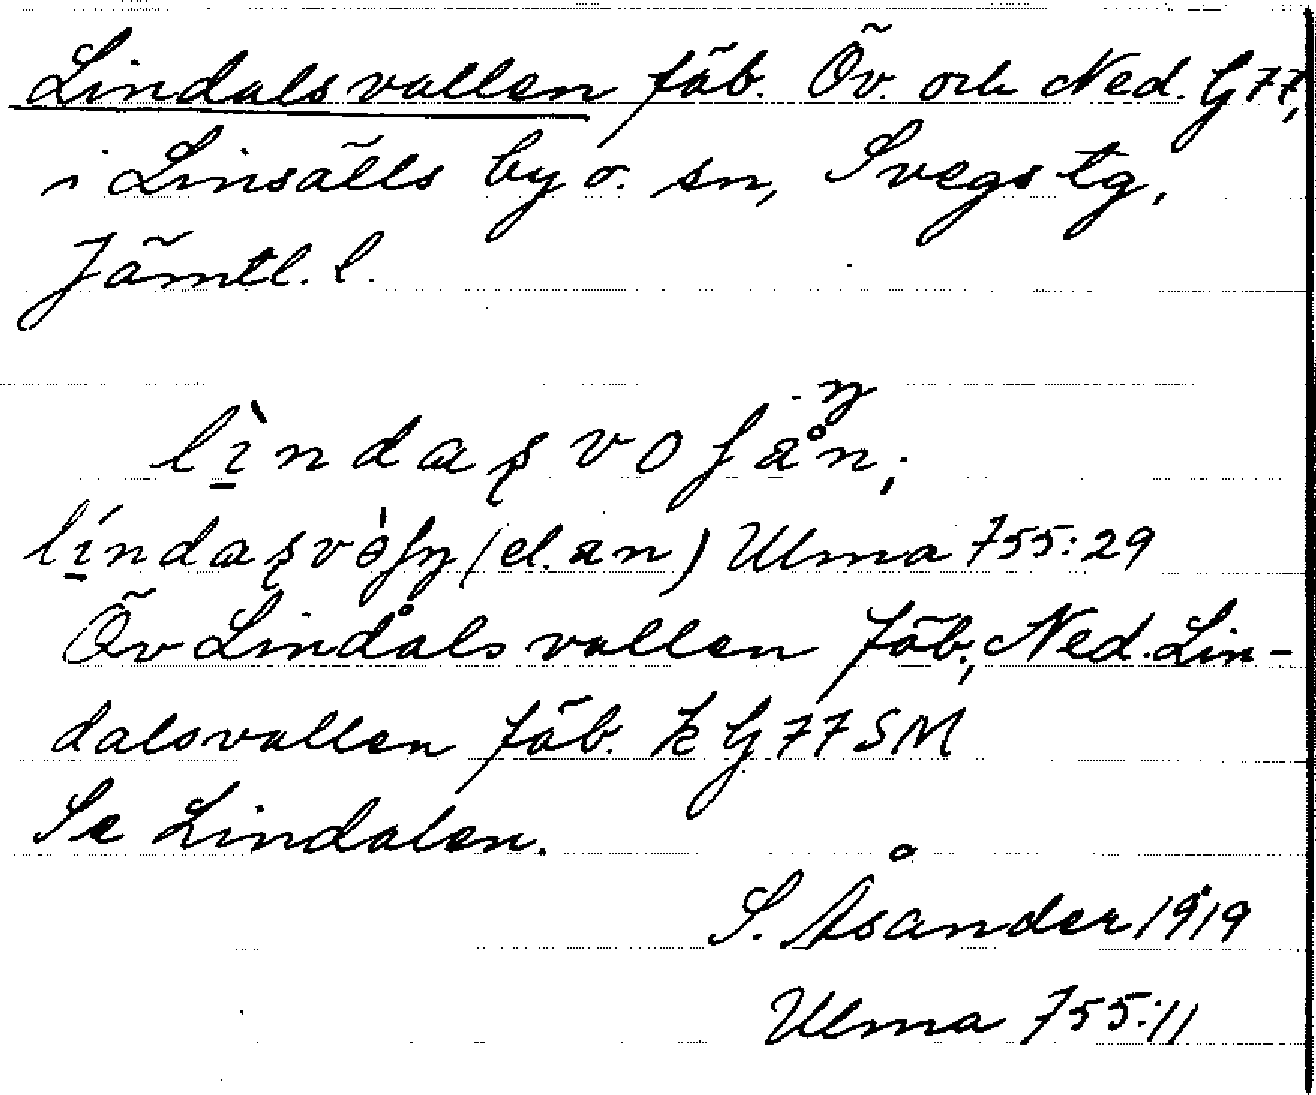 Lindalsvallen fäb. Öv. och Ned. G 77,
i Linsälls by o. sn, Svegs tg,
Jämtl. l.
lìndaʂvoʃån,
líndaʂvòʃn̥ (el. an) Ulma 755:29
Öv Lindålsvallen fäb., Ned. Lin-
dalsvallen fäb. k G 77 SM
Se Lindalen.
S. Åsander 1919
Ulma 755:11